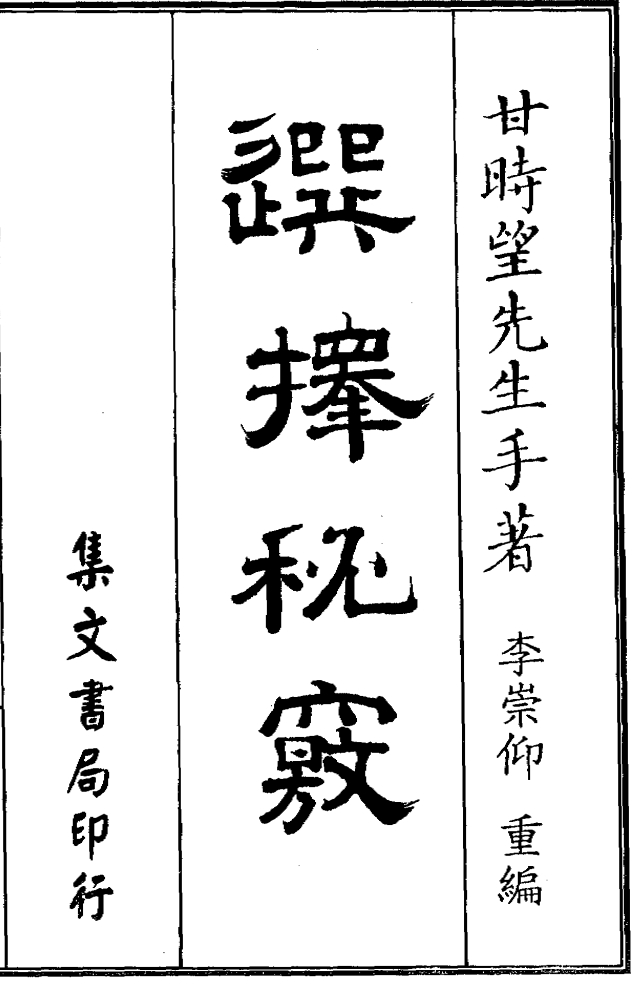 甘時望先生手著 李崇仰 重編
選擇秘竅
集文書局印行